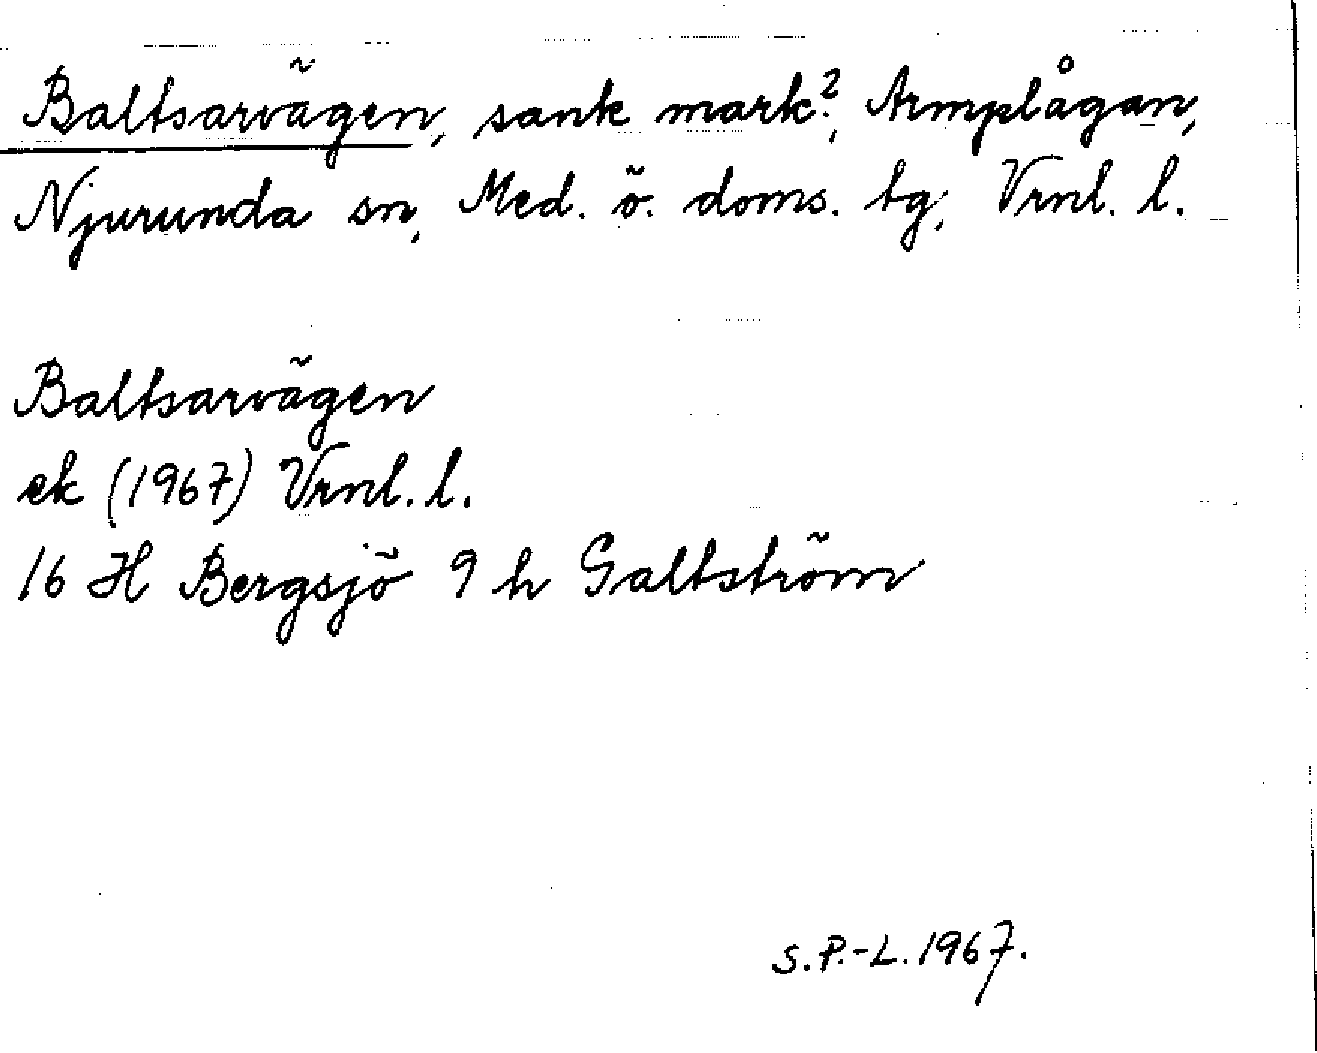 Baltsarvägen, sank mark?, Armplågan,
Njurunda sn, Med. ö. doms. tg, Vrnl. l.
Baltsarvägen
ek (1967) Vrnl. l.
16 H Bergsjö 9 h Galtström
S.P.-L. 1967.